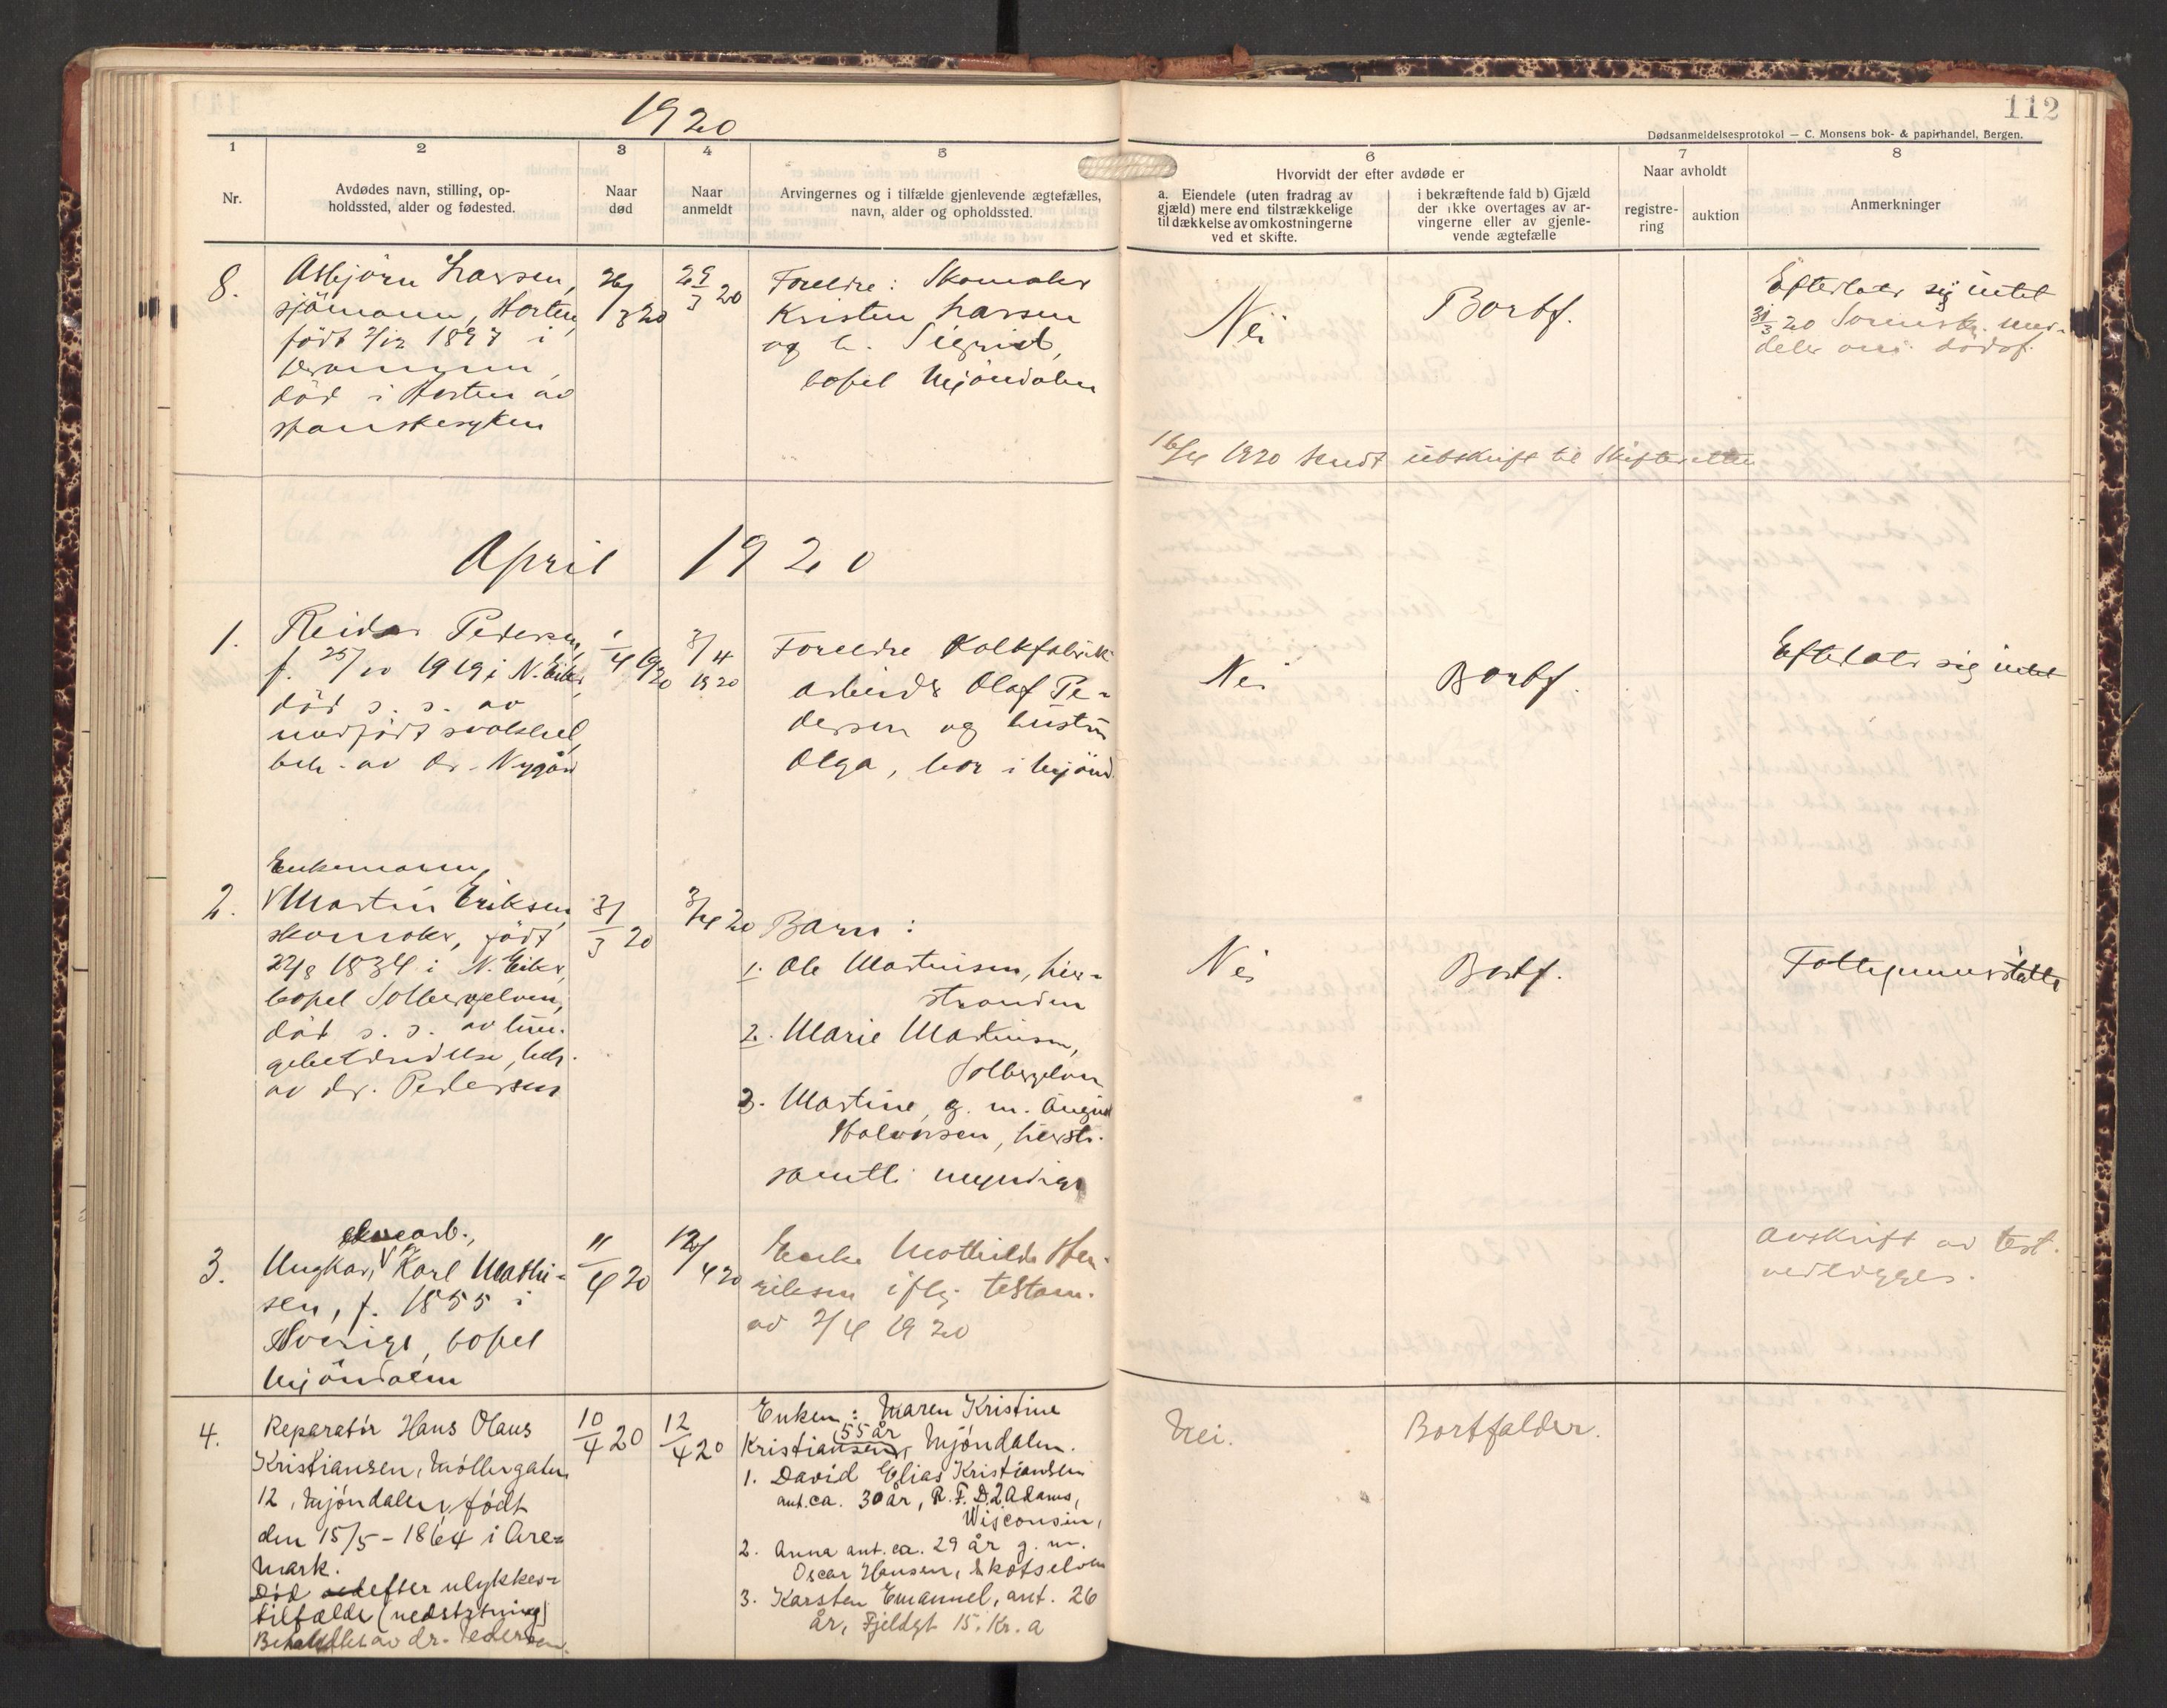 1920
112
Dødsanmeldelsesprotokol — C. Monsens bok- & papirhandel, Bergen.
1
2
3
4
5
6
7
8
Nr.
Avdødes navn, stilling, op-
holdssted, alder og fødested.
Naar
død
Naar
anmeldt
Arvingernes og i tilfælde gjenlevende ægtefælles,
navn, alder og opholdssted.
Hvorvidt der efter avdøde er
a. Eiendele (uten fradrag av
gjæld) mere end tilstrækkelige
til dækkelse av omkostningerne
ved et skifte.
i bekræftende fald b) Gjæld
der ikke overtages av ar-
vingerne eller av gjenle-
vende ægtefælle
Naar avholdt
registre-
ring
auktion
Anmerkninger
8.
Asbjörn Larsen,
sjömann, Horten,
född 2/12 1897 i
Drammen,
död i Horten av
spanskesyken
26/3 20
29/3 20
Foreldre: Skomaker
Kristen Larsen
og h. Sigrid,
bopel Mjöndalen
Nei
Bortf.
Efterlater sig intet
31/3 20 Sorensk. med-
deler om dödsf.
16/4 1920 sendt utskrift til Skifteretten
April 1920
1.
Reidar Pedersen,
f. 25/10 1919 i N. Eiker,
död s. s. av
medfödt svakhet,
beh. av dr. Nygård
1/4 1920
3/4 1920
Foreldre Kalkfabrik-
arbeider Olaf Pe-
dersen og hustru
Olga, bor i Mjönd.
Nei
Bortf.
Efterlater sig intet
2.
Enkemann,
Martin Eriksen,
skomaker, födt
22/8 1834 i N. Eiker,
bopel Solbergelven,
död s. s. av lun-
gebetendelse, beh.
av dr. Pedersen
31/3 20
3/4 20
Barn:
1. Ole Martinsen, hier-
stranden
2. Marie Martinsen,
Solbergelven
3. Martine, g. m. August
Halvorsen, hierstr.
samtl. myndige
Nei
Bortf.
Fattigunderstøtte
3.
Ungkar, Karl Mathi-
sen, f. 1855 i
Sverige, bopel
Mjöndalen
11/4 20
12/4 20
Enke Mathilde Hen-
riksen iflg. testam.
av 2/4 1920
Avskrift av test.
vedlægges.
4.
Reparatör Hans Olaus
Kristiansen, Möllergaten
12, Mjöndalen, födt
den 15/5 - 1864 i Are-
mark.
Död efter ulykkes-
tilfælde (nedstytning)
Behandlet av dr. Pedersen.
10/4 20
12/4 20
Enken: Maren Kristine
55 år
Kristiansen, Mjöndalen.
1. David Elias Kristiansen
ant. ca. 30 år, R. F. D. 2 Adams,
Wisconsin,
2. Anna ant. ca. 29 år g. m.
Oscar Hansen, Skotselven
3. Karsten Emanuel, ant. 26
år, Fjeldgt 15. Kr. a
Nei.
Bortfalder.